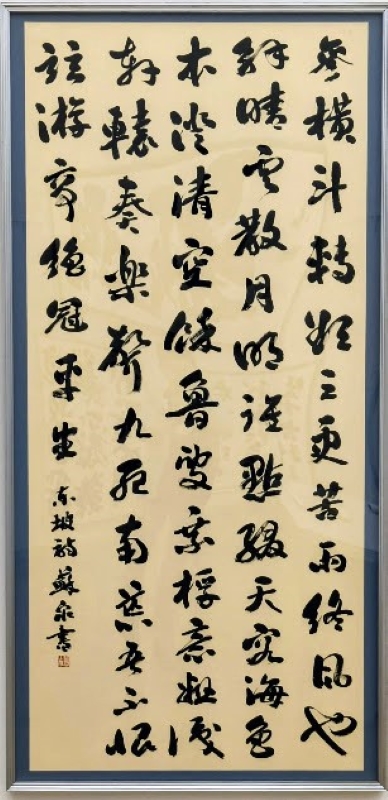 參橫斗轉欲三更苦雨終風也
解晴雲散月明誰點綴天容海色
本澄清空餘魯叟乘桴意粗識
軒轅奏樂聲九死南荒吾不恨
茲游奇絕冠平生 東坡詩 蘇 書